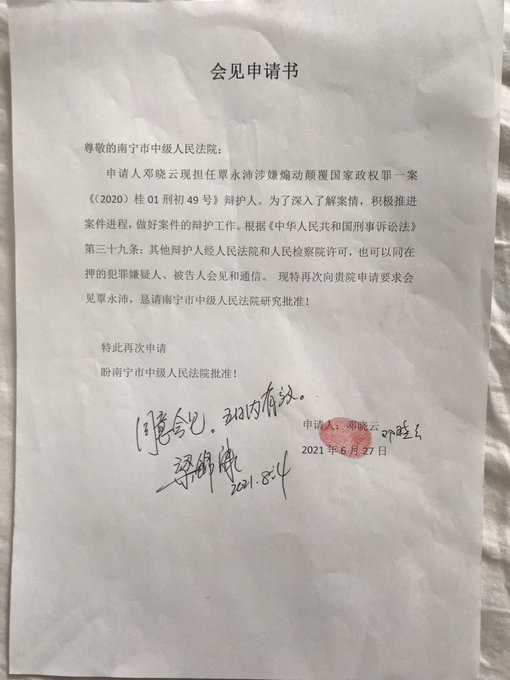 会见申请书
尊敬的南宁市中级人民法院：
申请人邓晓云现担任覃永沛涉嫌煽动颠覆国家政权罪一案
《（2020）桂 01 刑初 49 号》辩护人。为了深入了解案情，积极推进
案件进程，做好案件的辩护工作。根据《中华人民共和国刑事诉讼法》
第三十九条：其他辩护人经人民法院和人民检察院许可，也可以同在
押的犯罪嫌疑人、被告人会见和通信。 现特再次向贵院申请要求会
见覃永沛，恳请南宁市中级人民法院研究批准！
特此再次申请
盼南宁市中级人民法院批准！
同意会见。五日内有效。
2021.8.4
申请人：邓晓云 邓晓云
2021 年 6 月 27 日